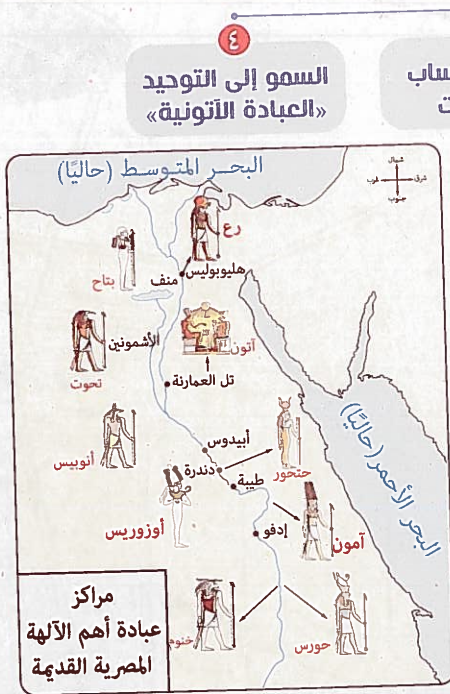 ٤
السمو إلى التوحيد
«العبادة الآتونية»
ساب
ت
البحر المتوسط (حاليًا)
شمال
شرق
غرب
جنوب
رع
هليوبوليس
منف
بتاح
الأشمونين
تحوت
آتون
تل العمارنة
أبيدوس
أنوبيس
دندرة
حتحور
طيبة
أوزوريس
إدفو
آمون
البحر الأحمر (حاليًا)
خنوم
حورس
مراكز
عبادة أهم الآلهة
المصرية القديمة